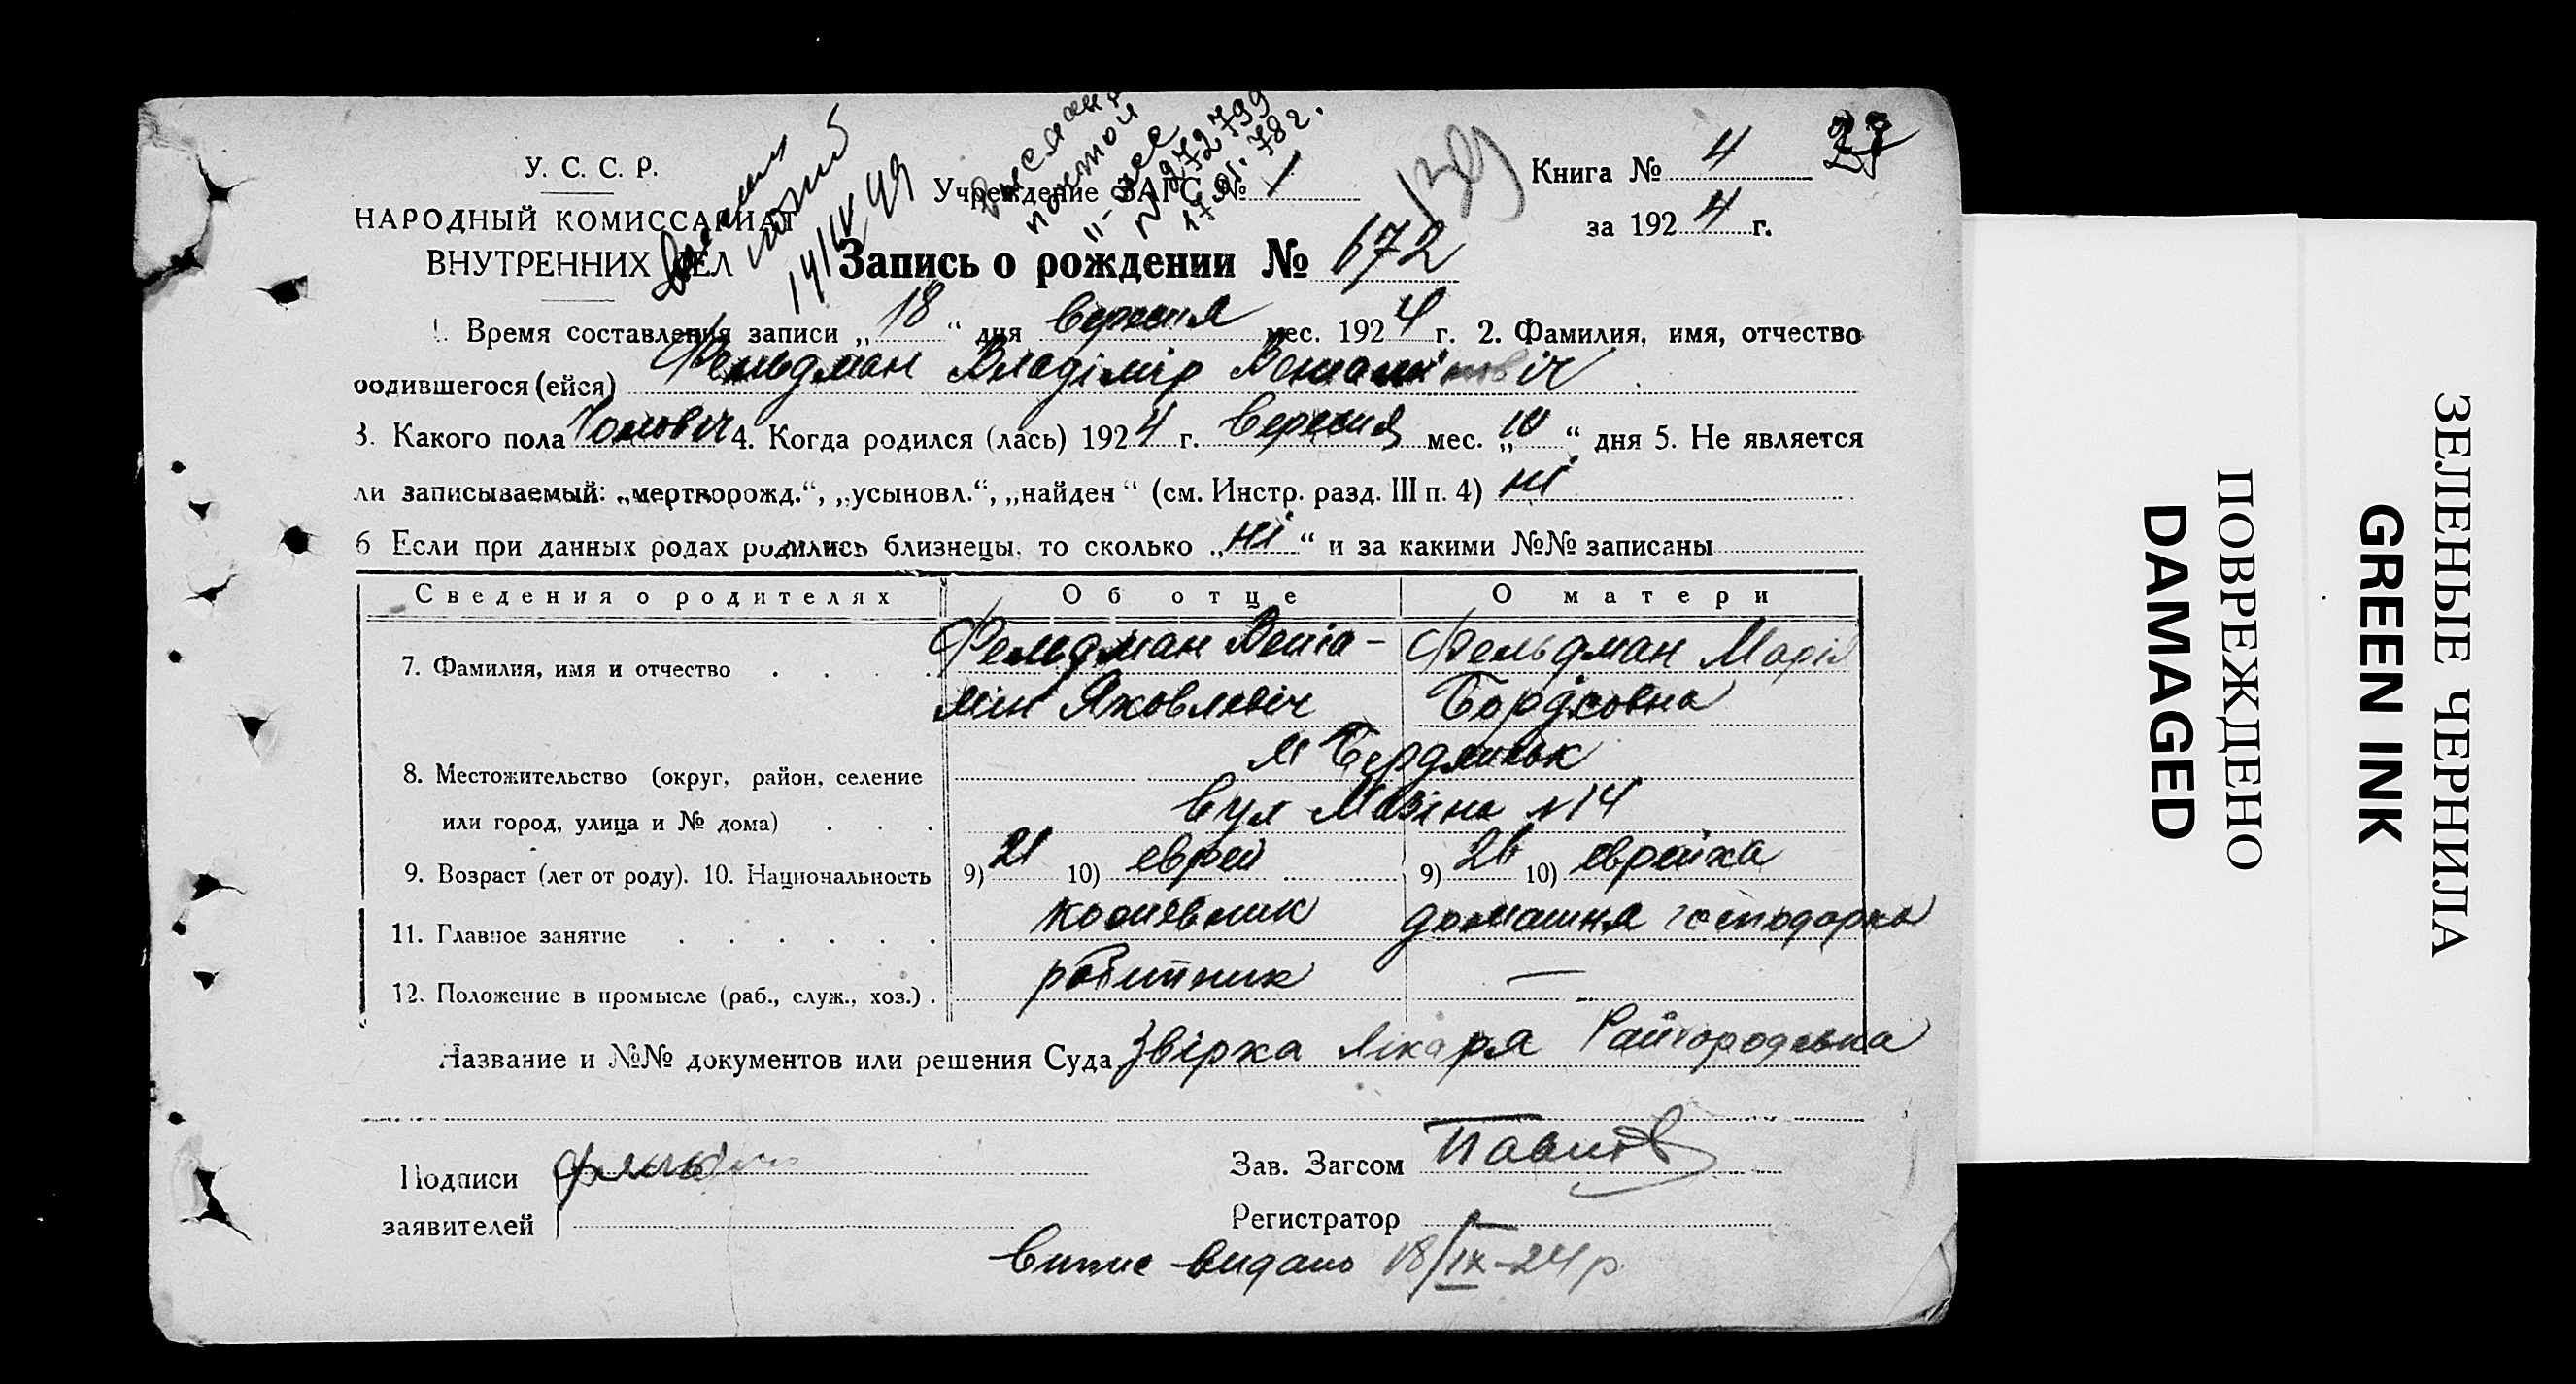 У. С. С. Р.
НАРОДНЫЙ КОМИССАРИАТ
ВНУТРЕННИХ ДЕЛ
14/IV 49
Учреждение ЗАГС № 1
Книга № 4
за 1924 г.
Запись о рождении № 672
1. Время составления записи „18“ дня вересня мес. 1924 г. 2. Фамилия, имя, отчество
родившегося (ейся) Фельдман Владімір
3. Какого пола Чоловіч 4. Когда родился (лась) 1924 г. Вересня мес. „10“ дня 5. Не является
ли записываемый: „мертворожд.“, „усыновл.“, „найден“ (см. Инстр. разд. III п. 4) ні
6 Если при данных родах родились близнецы, то сколько „ні“ и за какими №№ записаны
Сведения о родителях Об отце О матери
7. Фамилия, имя и отчество Фельдман Веніа- Фельдман Марія
мін Яковлевіч
8. Местожительство (округ, район, селение м Бердянськ
или город, улица и № дома) вул Мазіна №14
9. Возраст (лет от роду). 10. Национальность 9) 21 10) еврей 9) 21 10) еврейка
11. Главное занятие домашня господарка
12. Положение в промысле (раб., служ., хоз.) робитник —
Название и №№ документов или решения Суда звірка лікаря
Подписи
заявителей
Зав. Загсом
Регистратор
Випис видано 18/IX-24 р
ЗЕЛЕНЫЕ ЧЕРНИЛА
GREEN INK
ПОВРЕЖДЕНО
DAMAGED